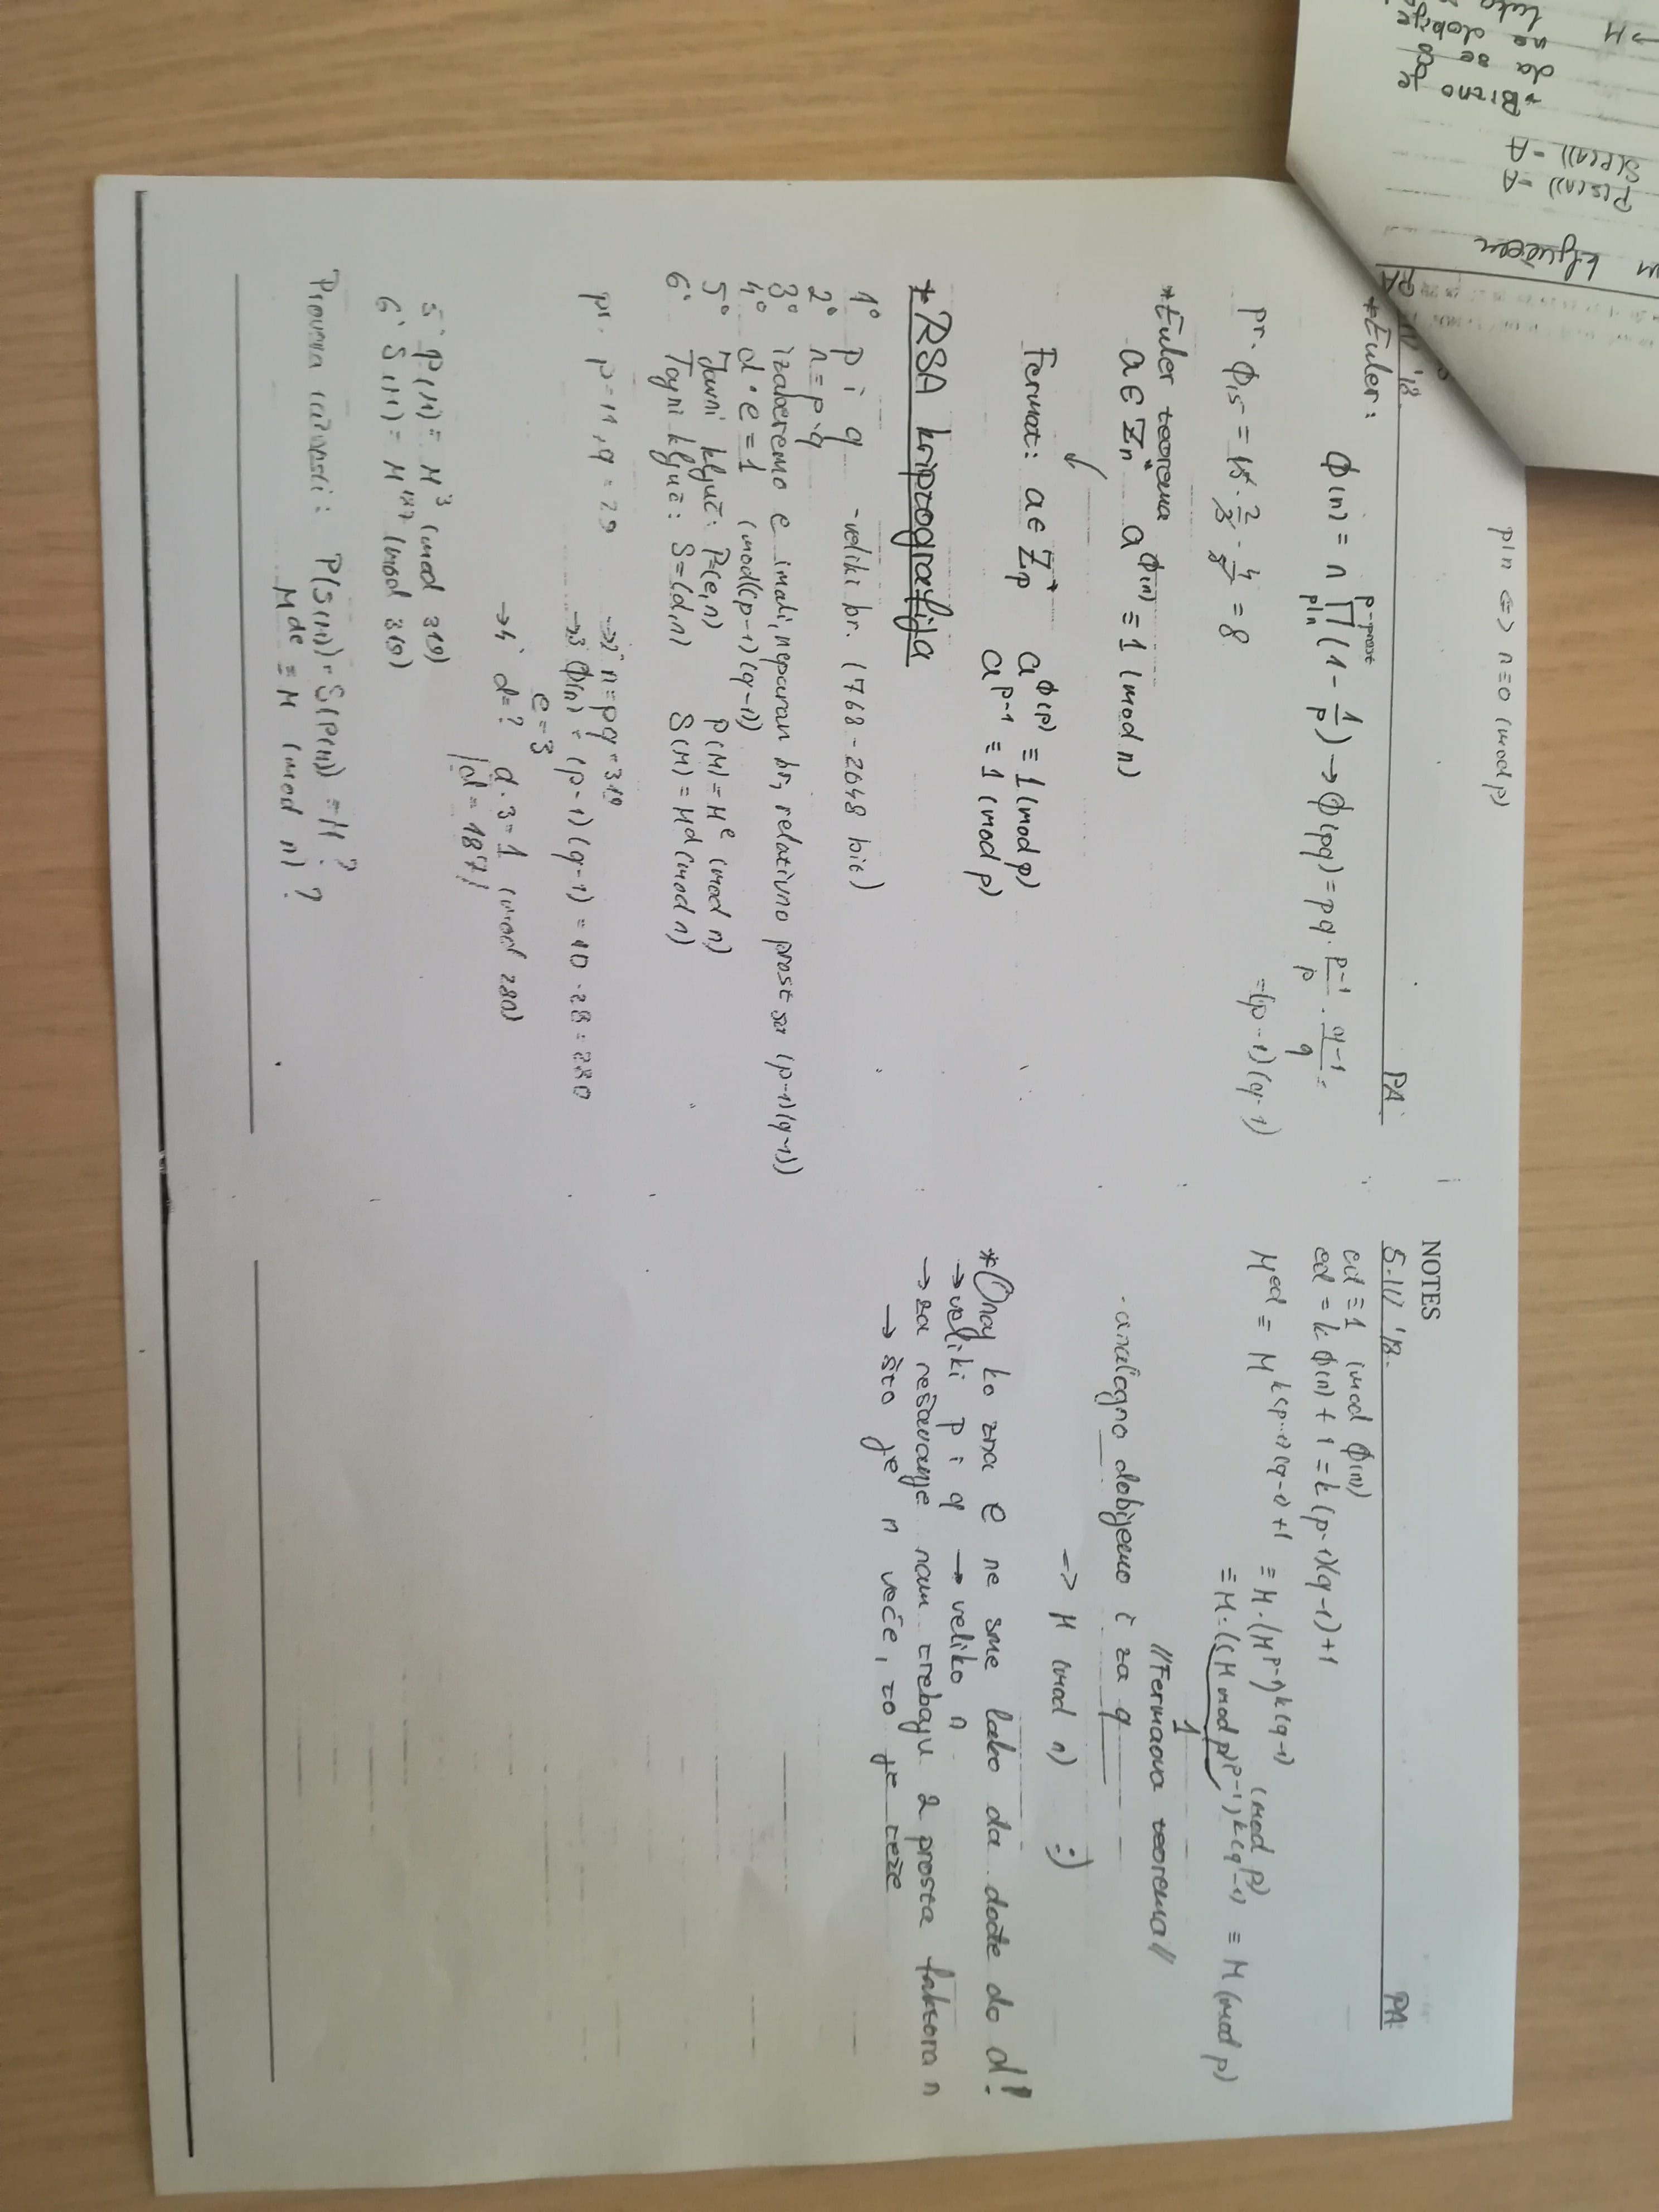 m ključem
P(S(A)) = A
S(P(A)) = A
*Bitno je
da se
ne dobije
→M
PA
p|n <=> n≡0 (mod p)
'18.
PA
*Euler:
ϕ(n) = n ∏ (1 - 1/p) → ϕ(pq) = pq · p-1/p · q-1/q =
p-prost
p|n
=(p-1)(q-1)
pr. ϕ15 = 15 · 2/3 · 4/5 = 8
*Euler teorema
a ∈ Zn* a^ϕ(n) ≡ 1 (mod n)
Fermat: a ∈ Zp* a^ϕ(p) ≡ 1 (mod p)
a^p-1 ≡ 1 (mod p)
*RSA kriptografija
1° p i q -veliki br. (768-2048 bit)
2° n=p·q
3° izaberemo e (mali, neparan br, relativno prost sa (p-1)(q-1))
4° d·e=1 (mod((p-1)(q-1))
5° Javni ključ: P=(e,n) P(M)=M^e (mod n)
6° Tajni ključ: S=(d,n) S(M)=M^d (mod n)
pr. p=11, q=29 →2° n=pq=319
→3 ϕ(n) = (p-1)(q-1) = 10·28=280
e=3
→4° d=? d·3=1 (mod 280)
/d=187/
5° P(M)= M^3 (mod 319)
6° S(M)= M^187 (mod 319)
P(S(M))=S(P(M)) =M?
M^de ≡ M (mod n)?
NOTES
5.IV '18.
PA
ed ≡ 1 (mod ϕ(n))
ed = k ϕ(n) + 1 = k(p-1)(q-1)+1
M^ed ≡ M^k(p-1)(q-1)+1 ≡ M·(M^p-1)^k(q-1) (mod p)
≡ M·((M mod p)^p-1)^k(q-1) ≡ M (mod p)
1
//Fermaova teorema//
-analogno dobijemo i za q
=> M (mod n) :)
*Onaj ko zna e ne sme lako da dođe do d!
→veliki p i q → veliko n
→za rešavanje nam trebaju 2 prosta faktora n
→ što je n veće, to je teže